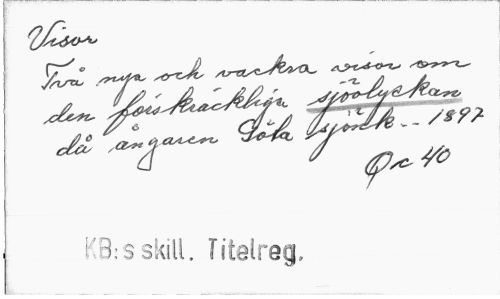 Visor
Två nya och vackra visor om
den förskräckliga sjöolyckan
då ångaren Göta sjönk.. 1897
Qc 40
KB:s skill. Titelreg.